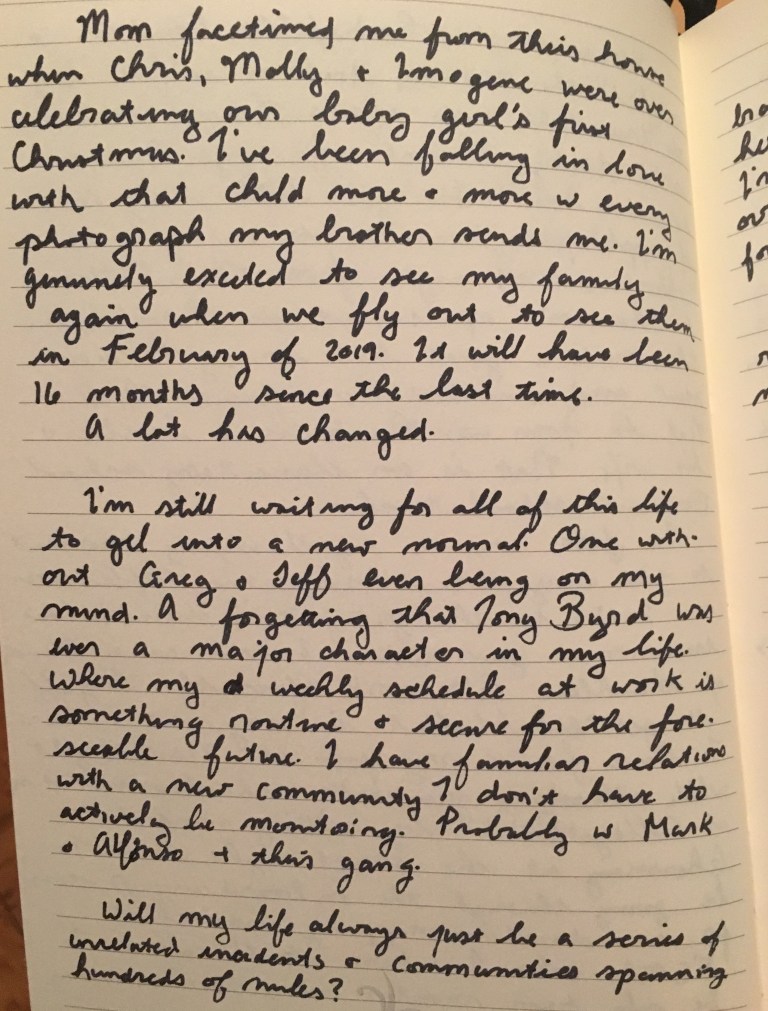 Mom facetimed me from their house
when Chris, Molly + Imogene were over
celebrating our baby girl's first
Christmas. I've been falling in love
with that child more + more w every
photograph my brother sends me. I'm
genuinely excited to see my family
again when we fly out to see them
in February of 2019. It will have been
16 months since the last time.
A lot has changed.
I'm still waiting for all of this life
to gel into a new normal. One with-
out Greg + Jeff even being on my
mind. A forgetting that Tony Byrd was
ever a major character in my life.
Where my weekly schedule at work is
something routine + secure for the fore-
seeable future. I have familiar relations
with a new community I don't have to
actively be monitoring. Probably w Mark
+ Alfonso + their gang.
Will my life always just be a series of
unrelated incidents + communities spanning
hundreds of miles?